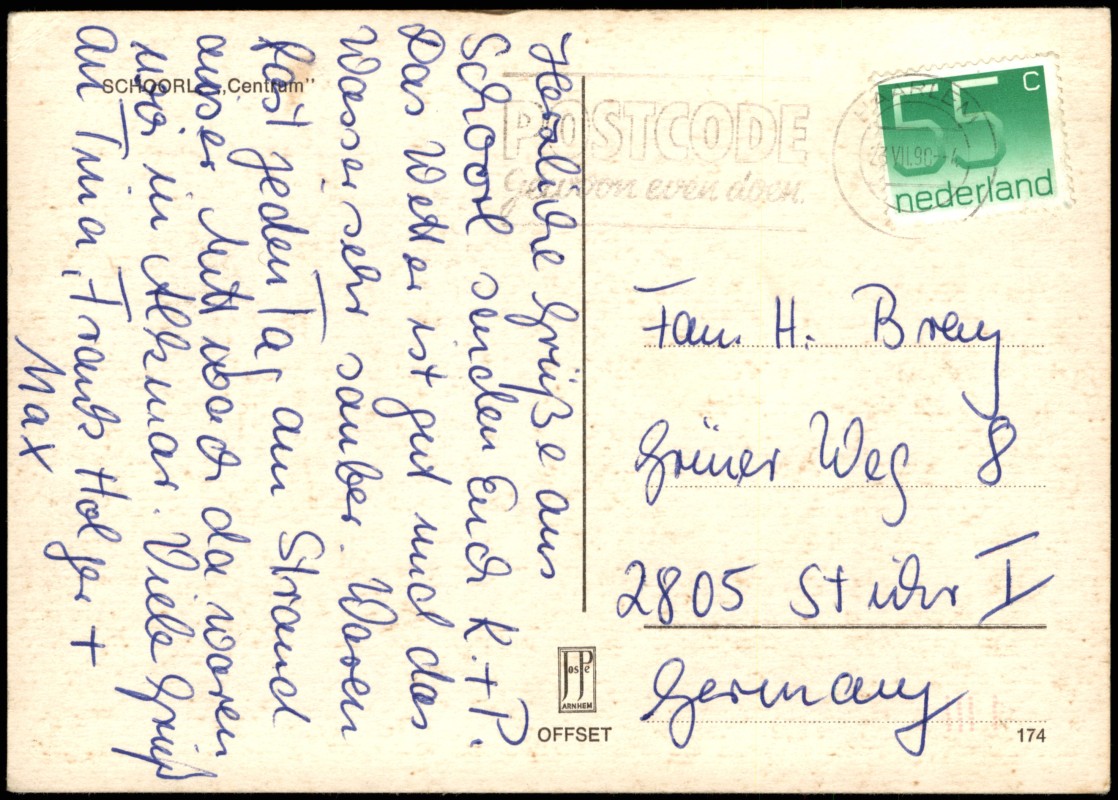 SCHOORL „Centrum"
Herzliche Grüße aus
Schoorl senden Euch K. + P.
Das Wetter ist gut und das
Wasser sehr sauber. Waren
fast jeden Tag am Strand
auser Mittwoch da waren
wir in Alkmar. Viele Grüß
an Tina, Frank Holger +
Max
POSTCODE
Gewoon even doen.
HAARLEM
VII.90
55 C
nederland
Fam. H. Brey
Grüner Weg 8
2805 Stuhr I
Germany
JosPe
ARNHEM
OFFSET
174